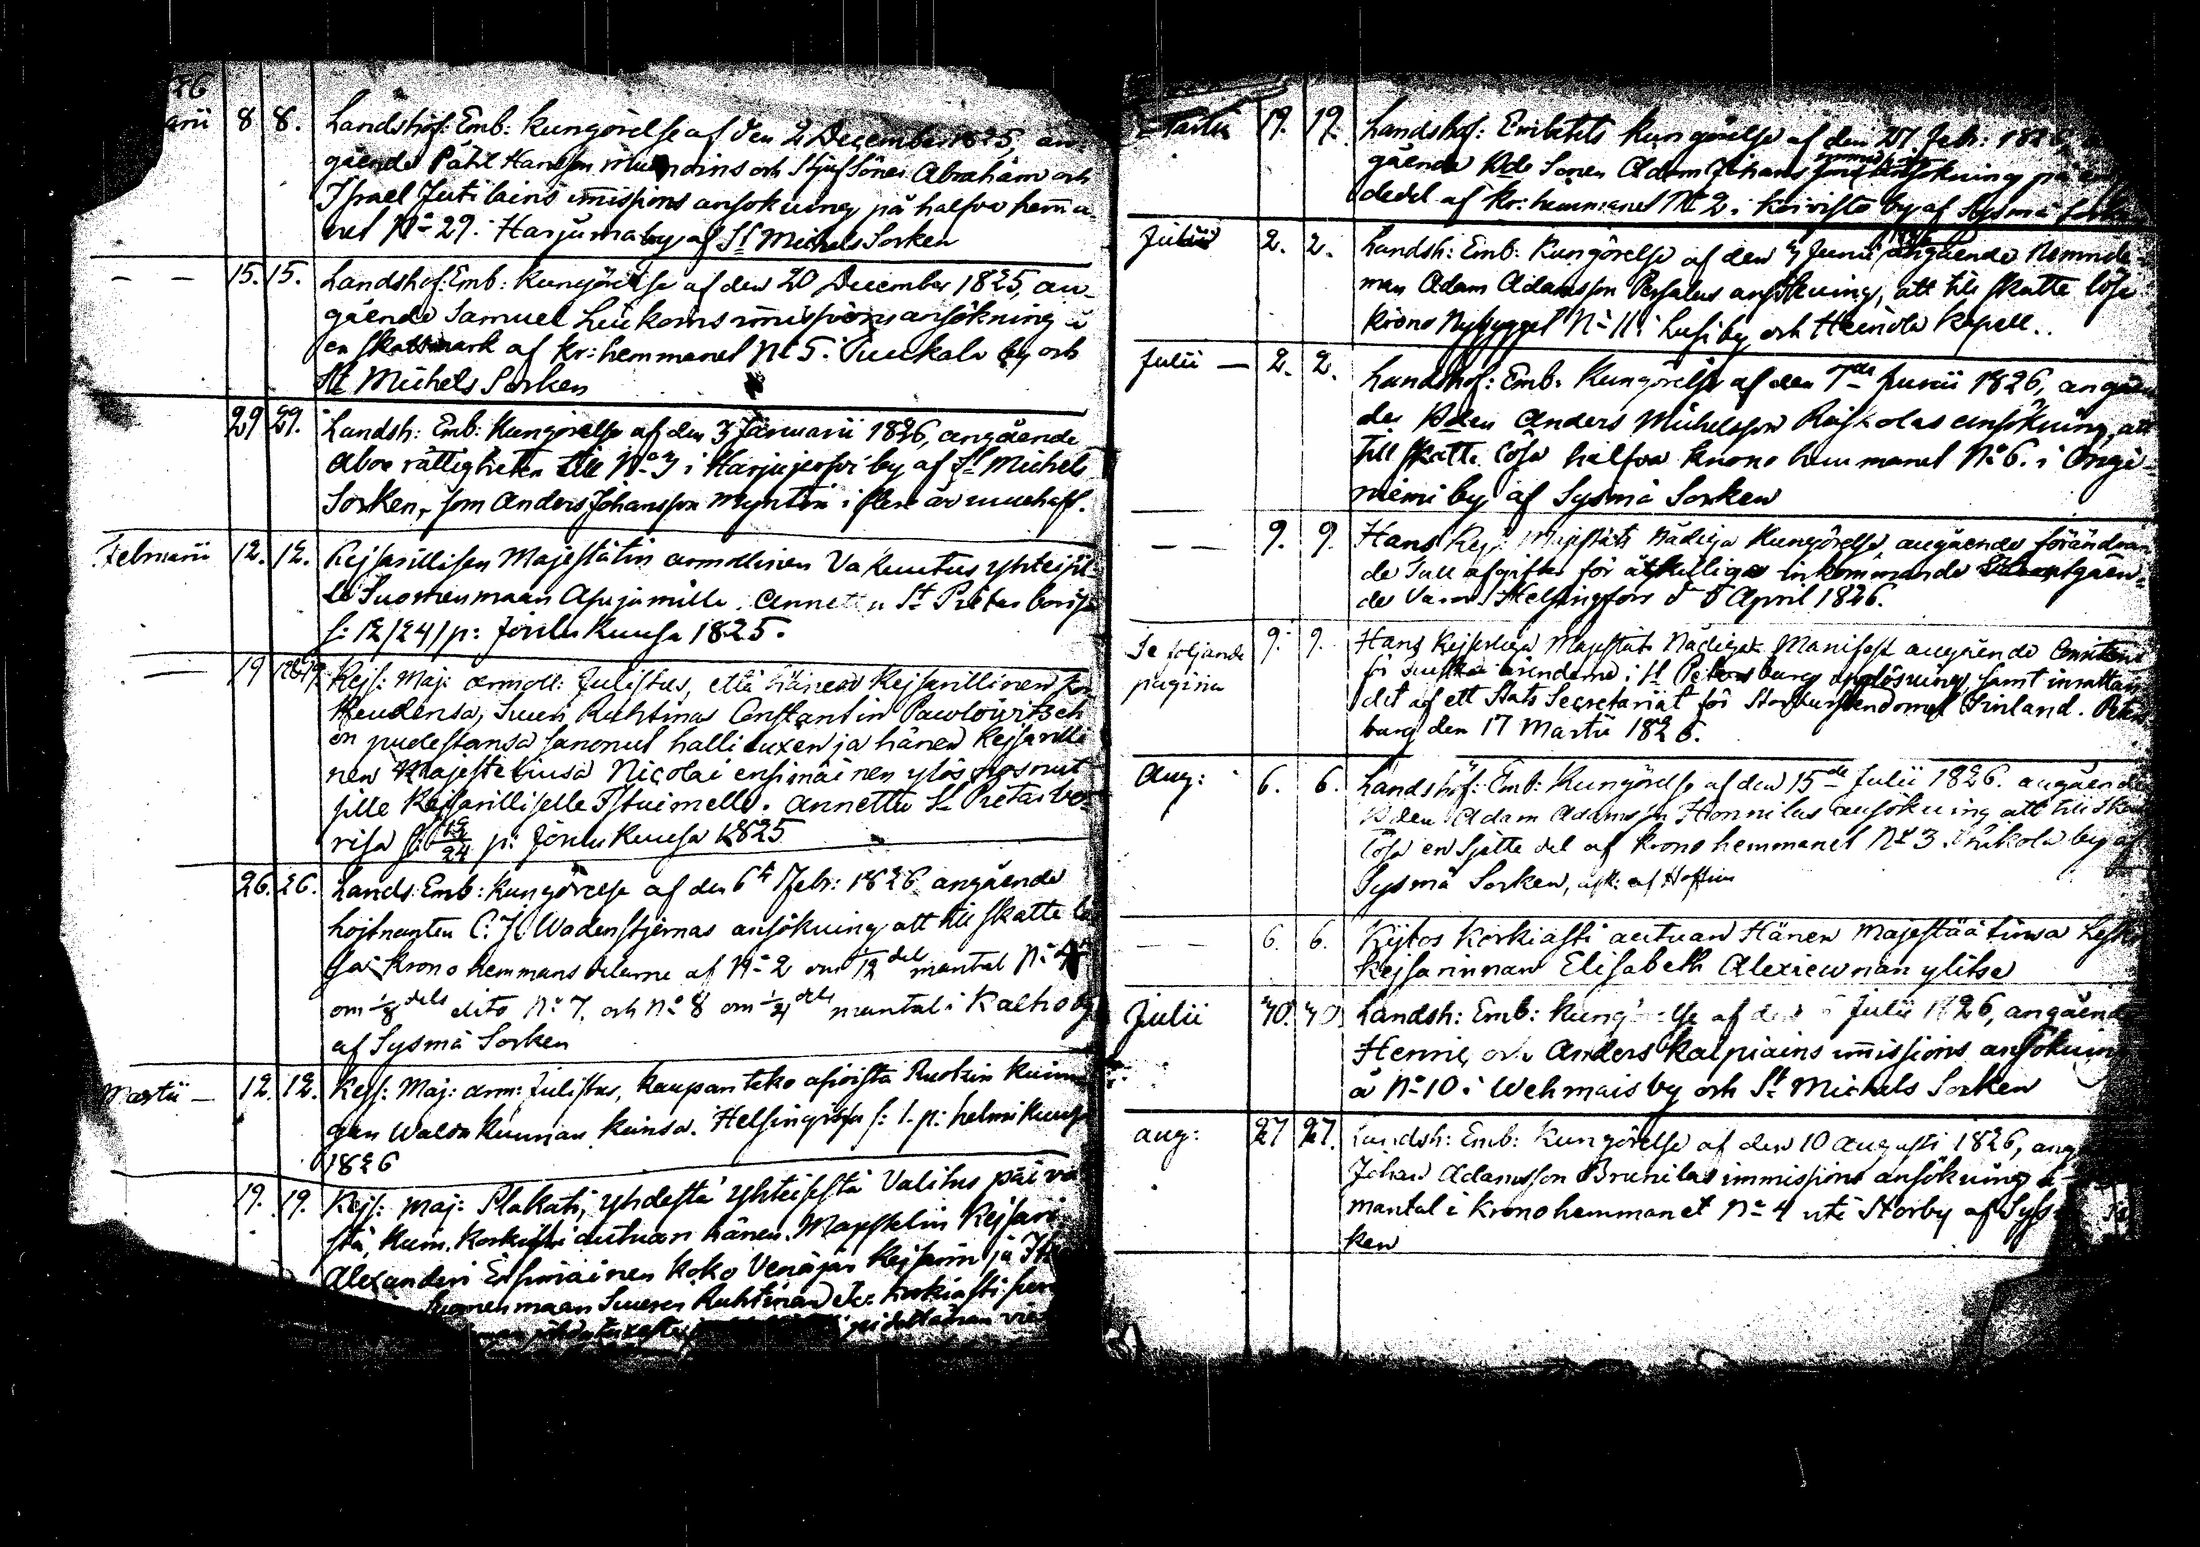 26
arii 8 8. Landshöf: Emb: Kungörelse af den 2 December 1825, an-
gående Påhl Hansson och Stjufsöner Abraham och
Israel Jutilains imissions ansökning på halfva hemma-
net N:o 29. Harjumaby af S:t Michels Socken
— — 15. 15. Landshöf: Emb: Kungörelse af den 20 December 1825, an-
gående Samuel Liukoins imissions ansökning å
en skattmark af Kr: hemmanet N:o 5. by och
St Michels Socken
29 29. Landsh: Emb: Kungörelse af den 3 Januarii 1826, angående
Aboe rättigheten till N:o i Harjujerfvi by af S:t Michels
Socken, som Anders Johansson Myntin
Februarii 12. 12. Kejsarillisen Majestätin armollinen Vakuutus yhteisil-
le Suomenmaan Asujamille. Annettu St Pietarborisa
s: 12/24/ p: Joulu Kuusa 1825.
— 19 Kejs: Maj: armoll: Julistus, että hänen Kejsarillinen
Suuri Ruhtinas Constantin Pawlowitsch
on pudestansa sanonut hallituxen ja hänen Kejsarilli
nen Majestetiinsä Nicolai ensimäinen ylös
sille Kejsarilliselle Istuimelle. Annettu St. Pietarbo-
risa s: 12/24 p: Joulu Kuusa 1825
26. 26. Lands: Emb: Kungörelse af den 6te Febr: 1826 angående
Löjtnanten C. J. Wadenstjernas ansökning att till skatte lö
sa Krono hemmans delarne af N:o 2 om 1/12 del mantal N:o 4
om 1/8 dels dito N:o 7. och N:o 8 om 1/24 dels mantal i Kalho by
af Sysmä Socken
Martii — 12. 12. Kejs: Maj: arm: Julistus, kaupanteko asioista Ruotzin kunin
gan Waldakunnan kansa. Helsingisä s: 1. p: helmi Kuusa
1826
19. 19. Kejs: Maj: Plakati, yhdestä yhteisestä Valitus päivä
stä, kuin Korkiasti autuan hänen Majestetin Kejsari
Alexanderi Ensimäinen koko Venäjän Kejsarin ja
Suomenmaan Suuren Ruhtinan etc. korkiasti
Martii 19. 19. Landshöf: Embetets Kungörelse af den 21. Febr: 1826,
gående Bde Sonen Adam Johans ansökning på en
dedel af Kr: hemmanet N:o 2 i Koivisto by af Sysmä Socken
Julii 2. 2. Landsh: Emb: Kungörelse af den 7 Junii 1826 angående Nemnde-
man Adam Adamsson Persalus ansökning, att till skatte lösa
Krono Nybygget N:o 11 i Lusi by och Heinola Kapell..
Julii — 2. 2. Landshöf: Emb: Kungörelse af den 7de Junii 1826, angåen
de Bden Anders Michelsson Raskolas ansökning, att
till skatte lösa halfva krono hemmanet N:o 6. i Onge-
niemi by af Sysmä Socken
— — 9. 9. Hans Kejs: Majestäts Nådiga Kungörelse, angående förändran
de Tull afgifter för åtskilliga inkommande utgåen-
de Varor. Helsingfors d 5 April 1826.
Se följande 9. 9. Hans Kejserliga Majestäts Nådiga Manifest angående Comiteens
pagina för Finska ärenderne i St Petersburg upplösning, samt inrättan
det af ett Stats Secretariat för Storfurstendömet Finland. Peters
burg den 17 Martii 1826.
Aug: 6. 6. Landshöf: Emb: Kungörelse af den 15de Julii 1826. angående
Bden Adam Adamsson Honnilas ansökning att till skatte
lösa en sjätte del af Krono hemmanet N:o 3 by af
Sysmä Socken,
— — 6. 6. Kijtos Korkiasti autuan Hänen Majestäätinsä Leski
Kejsarinnan Elisabeth Alexiewnan ylitse
Julii 40. 40. Landsh: Emb: Kungörelse af den Julii 1826, angående
Henric och Anders Kalpiains imissions ansökning
å N:o 10 i Wehmais by och S:t Michels Socken
Aug: 27 27. Landsh: Emb: Kungörelse af den 10 Augusti 1826, ang
Johan Adamsson Brunilas immissions ansökning å
mantal i Kronohemmanet N:o 4 uti Storby af Sys
ken